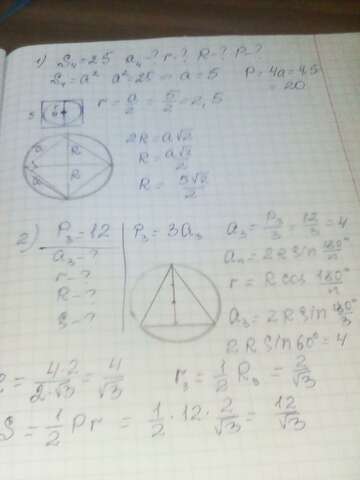 1) S₄=25 a₄-? r-? R-? P-?
S₄=a² a²=25 ⇒ a=5 P=4a=4·5
=20
r=a/2=5/2=2,5
2R=a√2
R=a√2/2
R=5√2/2
a
R
R
2) P₃=12
a₃-?
r-?
R-?
S-?
P₃=3a₃
a₃=P₃/3=12/3=4
aₙ=2R sin 180°/n
r=R cos 180°/n
a₃=2R sin 180°/3
2R sin 60°=4
=4·2/2·√3=4/√3 r₃=1/2 R₃=2/√3
S=1/2 Pr=1/2·12·2/√3=12/√3